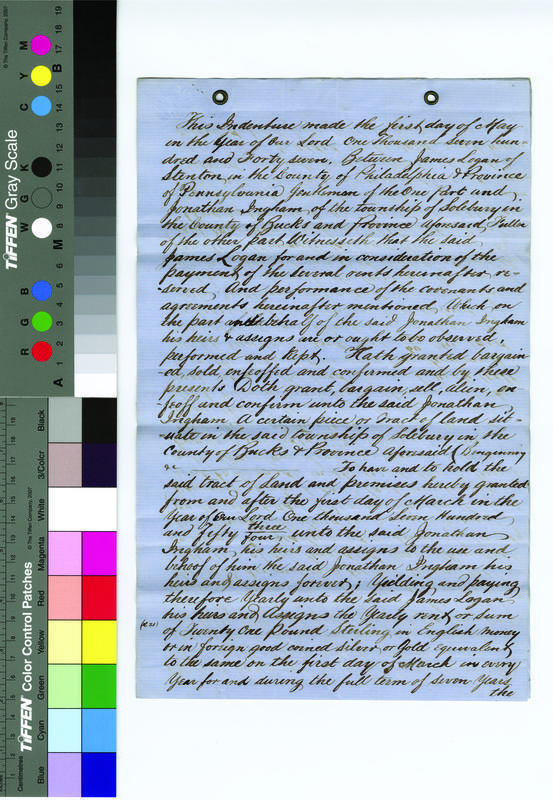 This Indenture made the first day of May
in the Year of Our Lord One Thousand Seven hun-
dred and Forty seven. Between James Logan of
Stenton, in the County of Philadelphia & Province
of Pennsylvania Gentleman of the One Part and
Jonathan Ingham, of the township of Solebury in
the County of Bucks and Province aforesaid, Fuller
of the other part Witnesseth that the said
James Logan for and in consideration of the
payment of the several rents hereinafter re-
served, And performance of the covenants and
agreements hereinafter mentioned, Which on
the part and behalf of the said Jonathan Ingham
his heirs & assigns are or ought to be observed,
performed and kept. Hath granted bargain
ed, sold, enfeoffed and confirmed and by these
presents Doth grant, bargain, sell, Alien, en
feoff and confirm unto the said Jonathan
Ingham A certain piece or tract of land sit
uate in the said township of Solebury in the
County of Bucks & Province aforesaid (Beginning
&c To have and to hold the
said tract of Land and premises hereby granted
from and after the first day of March in the
Year of Our Lord One thousand Seven Hundred
three
and fifty four, unto the said Jonathan
Ingham, his heirs and assigns to the use and
behoof of him the said Jonathan Ingham his
heirs and assigns forever; Yielding and paying
therefore Yearly unto the said James Logan
his heirs and Assigns the Yearly rent or sum
of Twenty One Pound Sterling in English money
or in foreign good coined silver or Gold Equivalent
to the same on the first day of March in every
Year for and during the full term of seven Years,
the
TIFFEN Gray Scale
© The Tiffen Company, 2007
R G B W G K C Y M
A 1 2 3 4 5 6 7 8 M 9 10 11 12 13 14 15 B 17 18 19
TIFFEN Color Control Patches
© The Tiffen Company, 2007
Centimetres
Blue Cyan Green Yellow Red Magenta White 3/Color Black